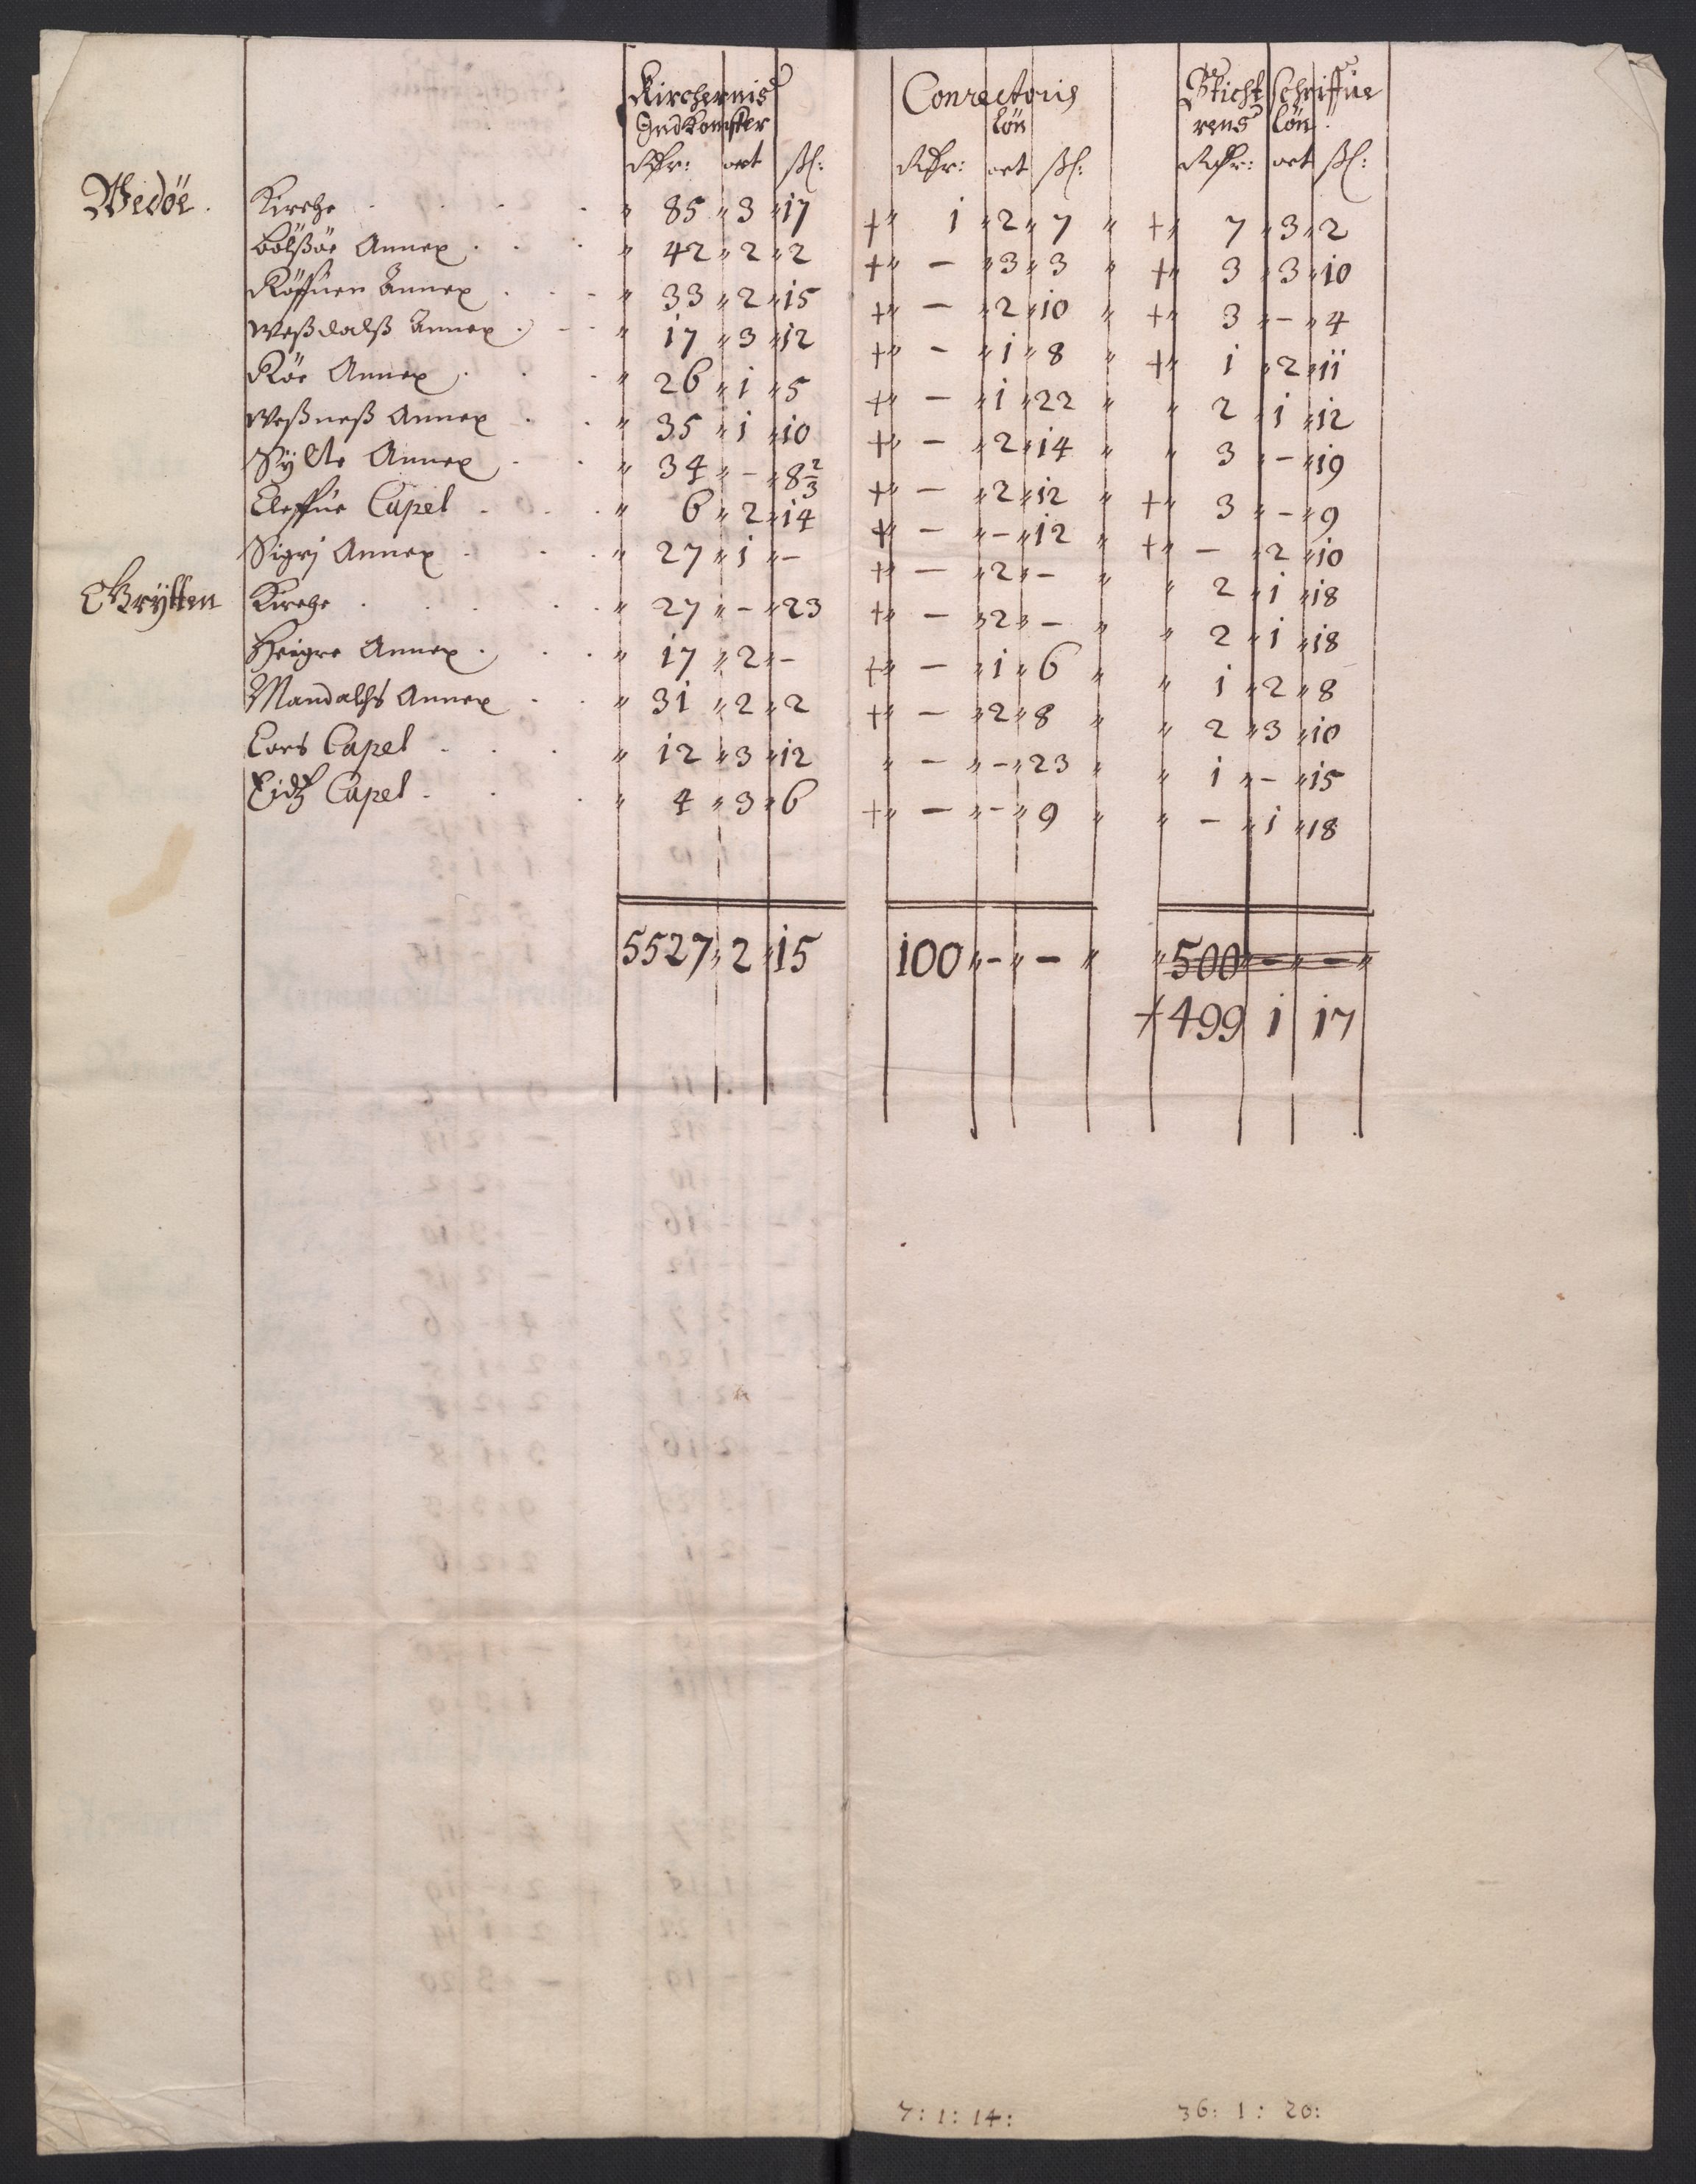 Kirchernis Conrectoris Sticht Schriffue
Indkomster løn rens løn.
Rdr: ort ßl: Rdr: ort ßl: Rdr: ort ßl:
Wedøe. Kirche . . . . . " 85 " 3 " 17 +" 1 " 2 " 7 " +" 7 " 3 " 2
Bolßøe Annex . . . " 42 " 2 " 2 +" – " 3 " 3 " +" 3 " 3 " 10
Røffuen Annex . . - " 33 " 2 " 15 +" – " 2 " 10 " +" 3 " – " 4
Weßdalß Annex . - - " 17 " 3 " 12 +" – " 1 " 8 " +" 1 " 2 " 11
Køe Annex . . - " 26 " 1 " 5 +" – " 1 " 22 " " 2 " 1 " 12
Weßneß Annex . . " 35 " 1 " 10 +" – " 2 " 14 " " 3 " – " 19
Sylte Annex . . " 34 " – " 8 2/3 +" – " 2 " 12 " +" 3 " – " 9
Eleffue Capel . . . " 6 " 2 " 14 +" – " – " 12 " +" – " 2 " 10
Sigrj Annex . . . " 27 " 1 " – +" – " 2 " – " " 2 " 1 " 18
Grytten Kirche . . . . . " 27 " – " 23 +" – " 2 " – " " 2 " 1 " 18
Heigre Annex . . . " 17 " 2 " – +" – " 1 " 6 " " 1 " 2 " 8
Mandalhs Annex . . " 31 " 2 " 2 +" – " 2 " 8 " " 2 " 3 " 10
Cors Capel . . . " 12 " 3 " 12 " – " – " 23 " " 1 " – " 15
Eidz Capel . . . " 4 " 3 " 6 +" – " – " 9 " " – " 1 " 18
5527 " 2 " 15 100 " – " – " " 500 " – " – "
+ 499 1 17
7: 1: 14: 36: 1: 20: